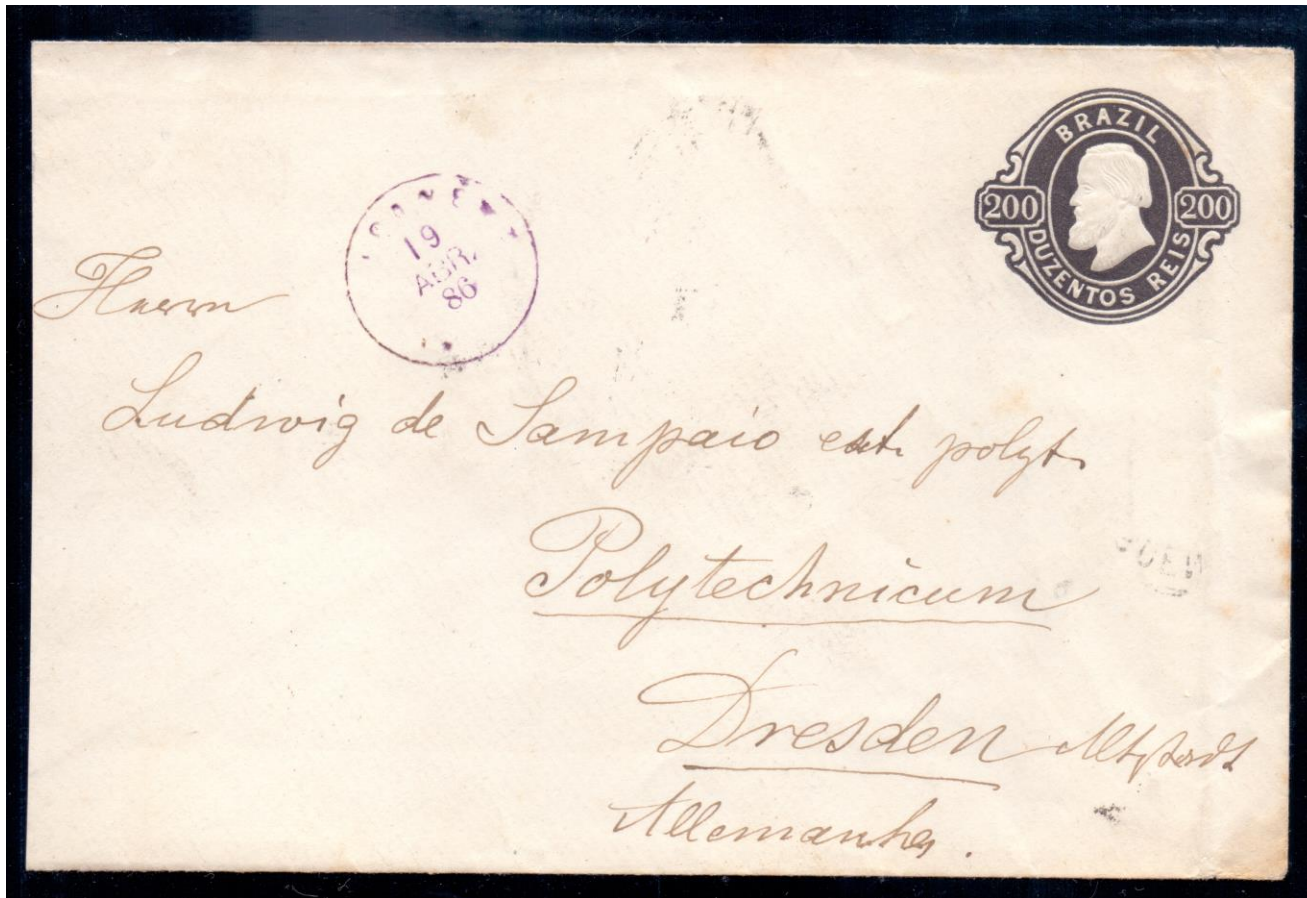 BRAZIL
200 200
DUZENTOS REIS
19
ABR.
86
Herrn
Ludwig de Sampaio est. polyt.
Polytechnicum
Dresden Altstadt
Allemanha.